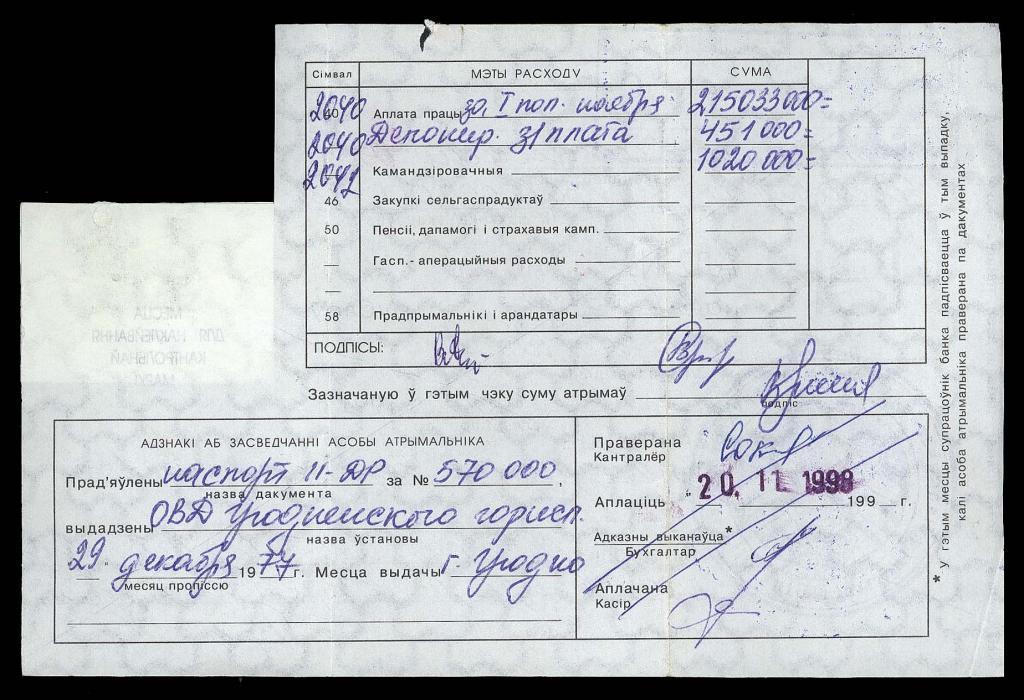 Сімвал МЭТЫ РАСХОДУ СУМА
2040 Аплата працы за I пол. ноября 215033000=
2040 Депонир. з/плата 451000=
2042 Камандзіровачныя 1020000=
46 Закупкі сельгаспрадуктаў
50 Пенсіі, дапамогі і страхавыя камп.
— Гасп.- аперацыйныя расходы
—
58 Прадпрымальнікі і арандатары
ПОДПІСЫ:
Зазначаную ў гэтым чэку суму атрымаў
подпіс
МЕСЦА
ДЛЯ НАКЛЕЙВАННЯ
КАНТРОЛЬНАЙ
МАРКІ
АДЗНАКІ АБ ЗАСВЕДЧАННІ АСОБЫ АТРЫМАЛЬНІКА
Прад'яўлены паспорт II-ДР за № 570 000,
назва дакумента
выдадзены ОВД Гродненского горисп.
назва ўстановы
29 декабря 1977 г. Месца выдачы г. Гродно
месяц пропіссю
Праверана
Кантралёр
Аплаціць „20. 11 1998 199 г.
Адказны выканаўца*
Бухгалтар
Аплачана
Касір
* У гэтым месцы супрацоўнік банка падпісваецца ў тым выпадку,
калі асоба атрымальніка праверана па дакументах